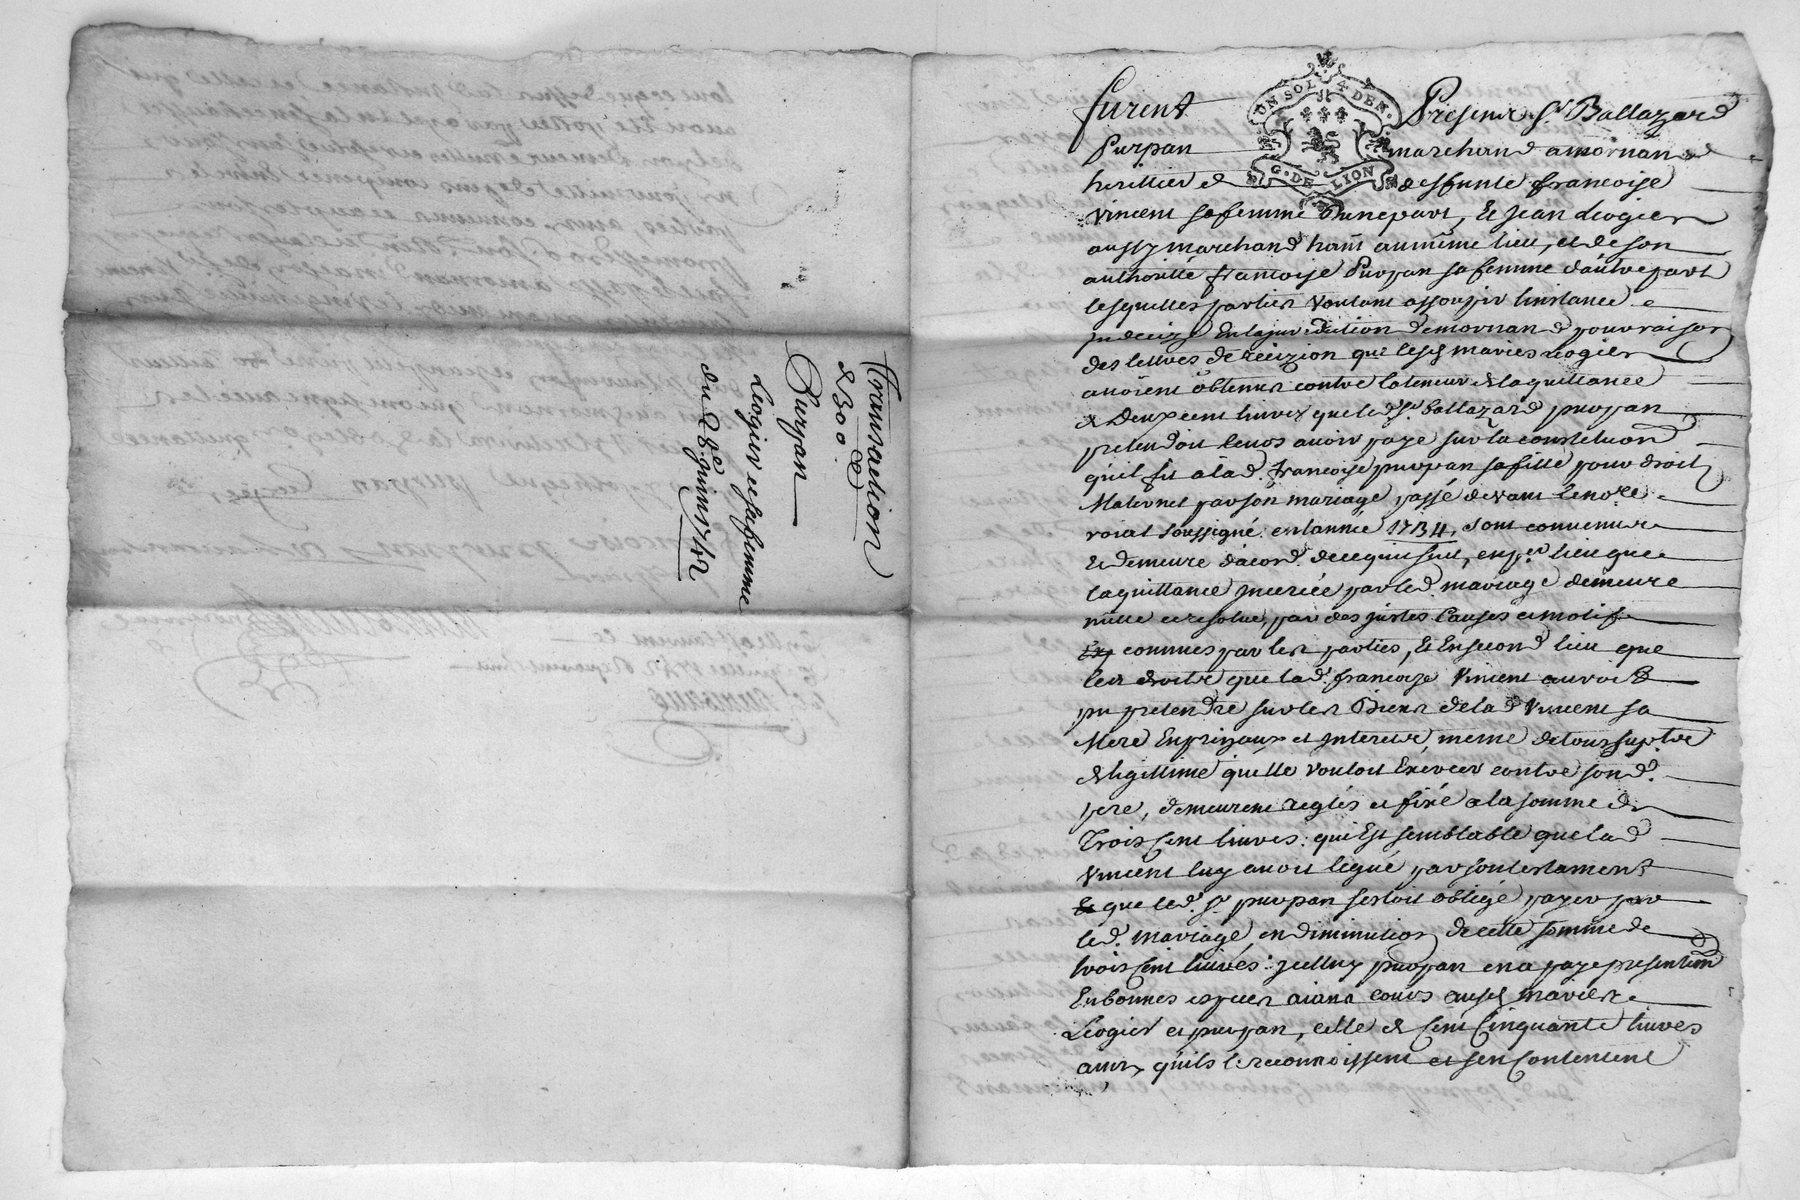 Transaction
de 300 ℔
Purpan
Leogier et sa femme
du 28e juin 1742
UN SOL 4 DEN.
G. DE LION
furent Presens Sr Baltazard
Purpan marchand a mornand
herittier de deffunte francoise
Vincent sa femme d'unepart, Et Jean Leogier
aussy marchand hant au même lieu, et de son
authorité francoise Purpan sa femme d'autre part
lesquelles parties voulant assoupir linstance
indecize En la jurisdiction de mornand pour raison
des lettres de rescizion que lesd maries Leogier
avoient obtenus contre la teneur de la quittance
de Deux cent livres que led. Sr baltazard purpan
pretendoit leurs avoir payé sur la constitution
qu'il fit a lad. francoise purpan sa fille pour droit
Maternel par son mariage passé devant le nore
roial soussigné en lannée 1734, sont convenus
Et demeuré d'acord de ce qui suit, en per lieu que
la quittance inserée par led. mariage demeure
nulle et resolue, par des justes Causes et motifs
connues par les parties, Et En second lieu que
les droits que lad. francoize Vincent auroit
pu pretendre sur les Biens de lad Vincent sa
Mere En prinçaux et interets, meme de tous suplt
de legittime quelle vouloit Exercer contre sond.
pere, demeurent reglés et fixé a la somme de
Trois Cent livres: qui Est semblable que lad
Vincent luy avoit legué par son testament
que led. Sr purpan sestoit obligé payer par
led. mariage, en diminution de cette somme de
trois Cent livres: jcelluy purpan en a payé presentemt
En bonnes especes aiant cours ausd maries
Leogier et purpan, celle de Cent Cinquante livres
ainsy qu'ils le reconnoissent et s'en Contentent